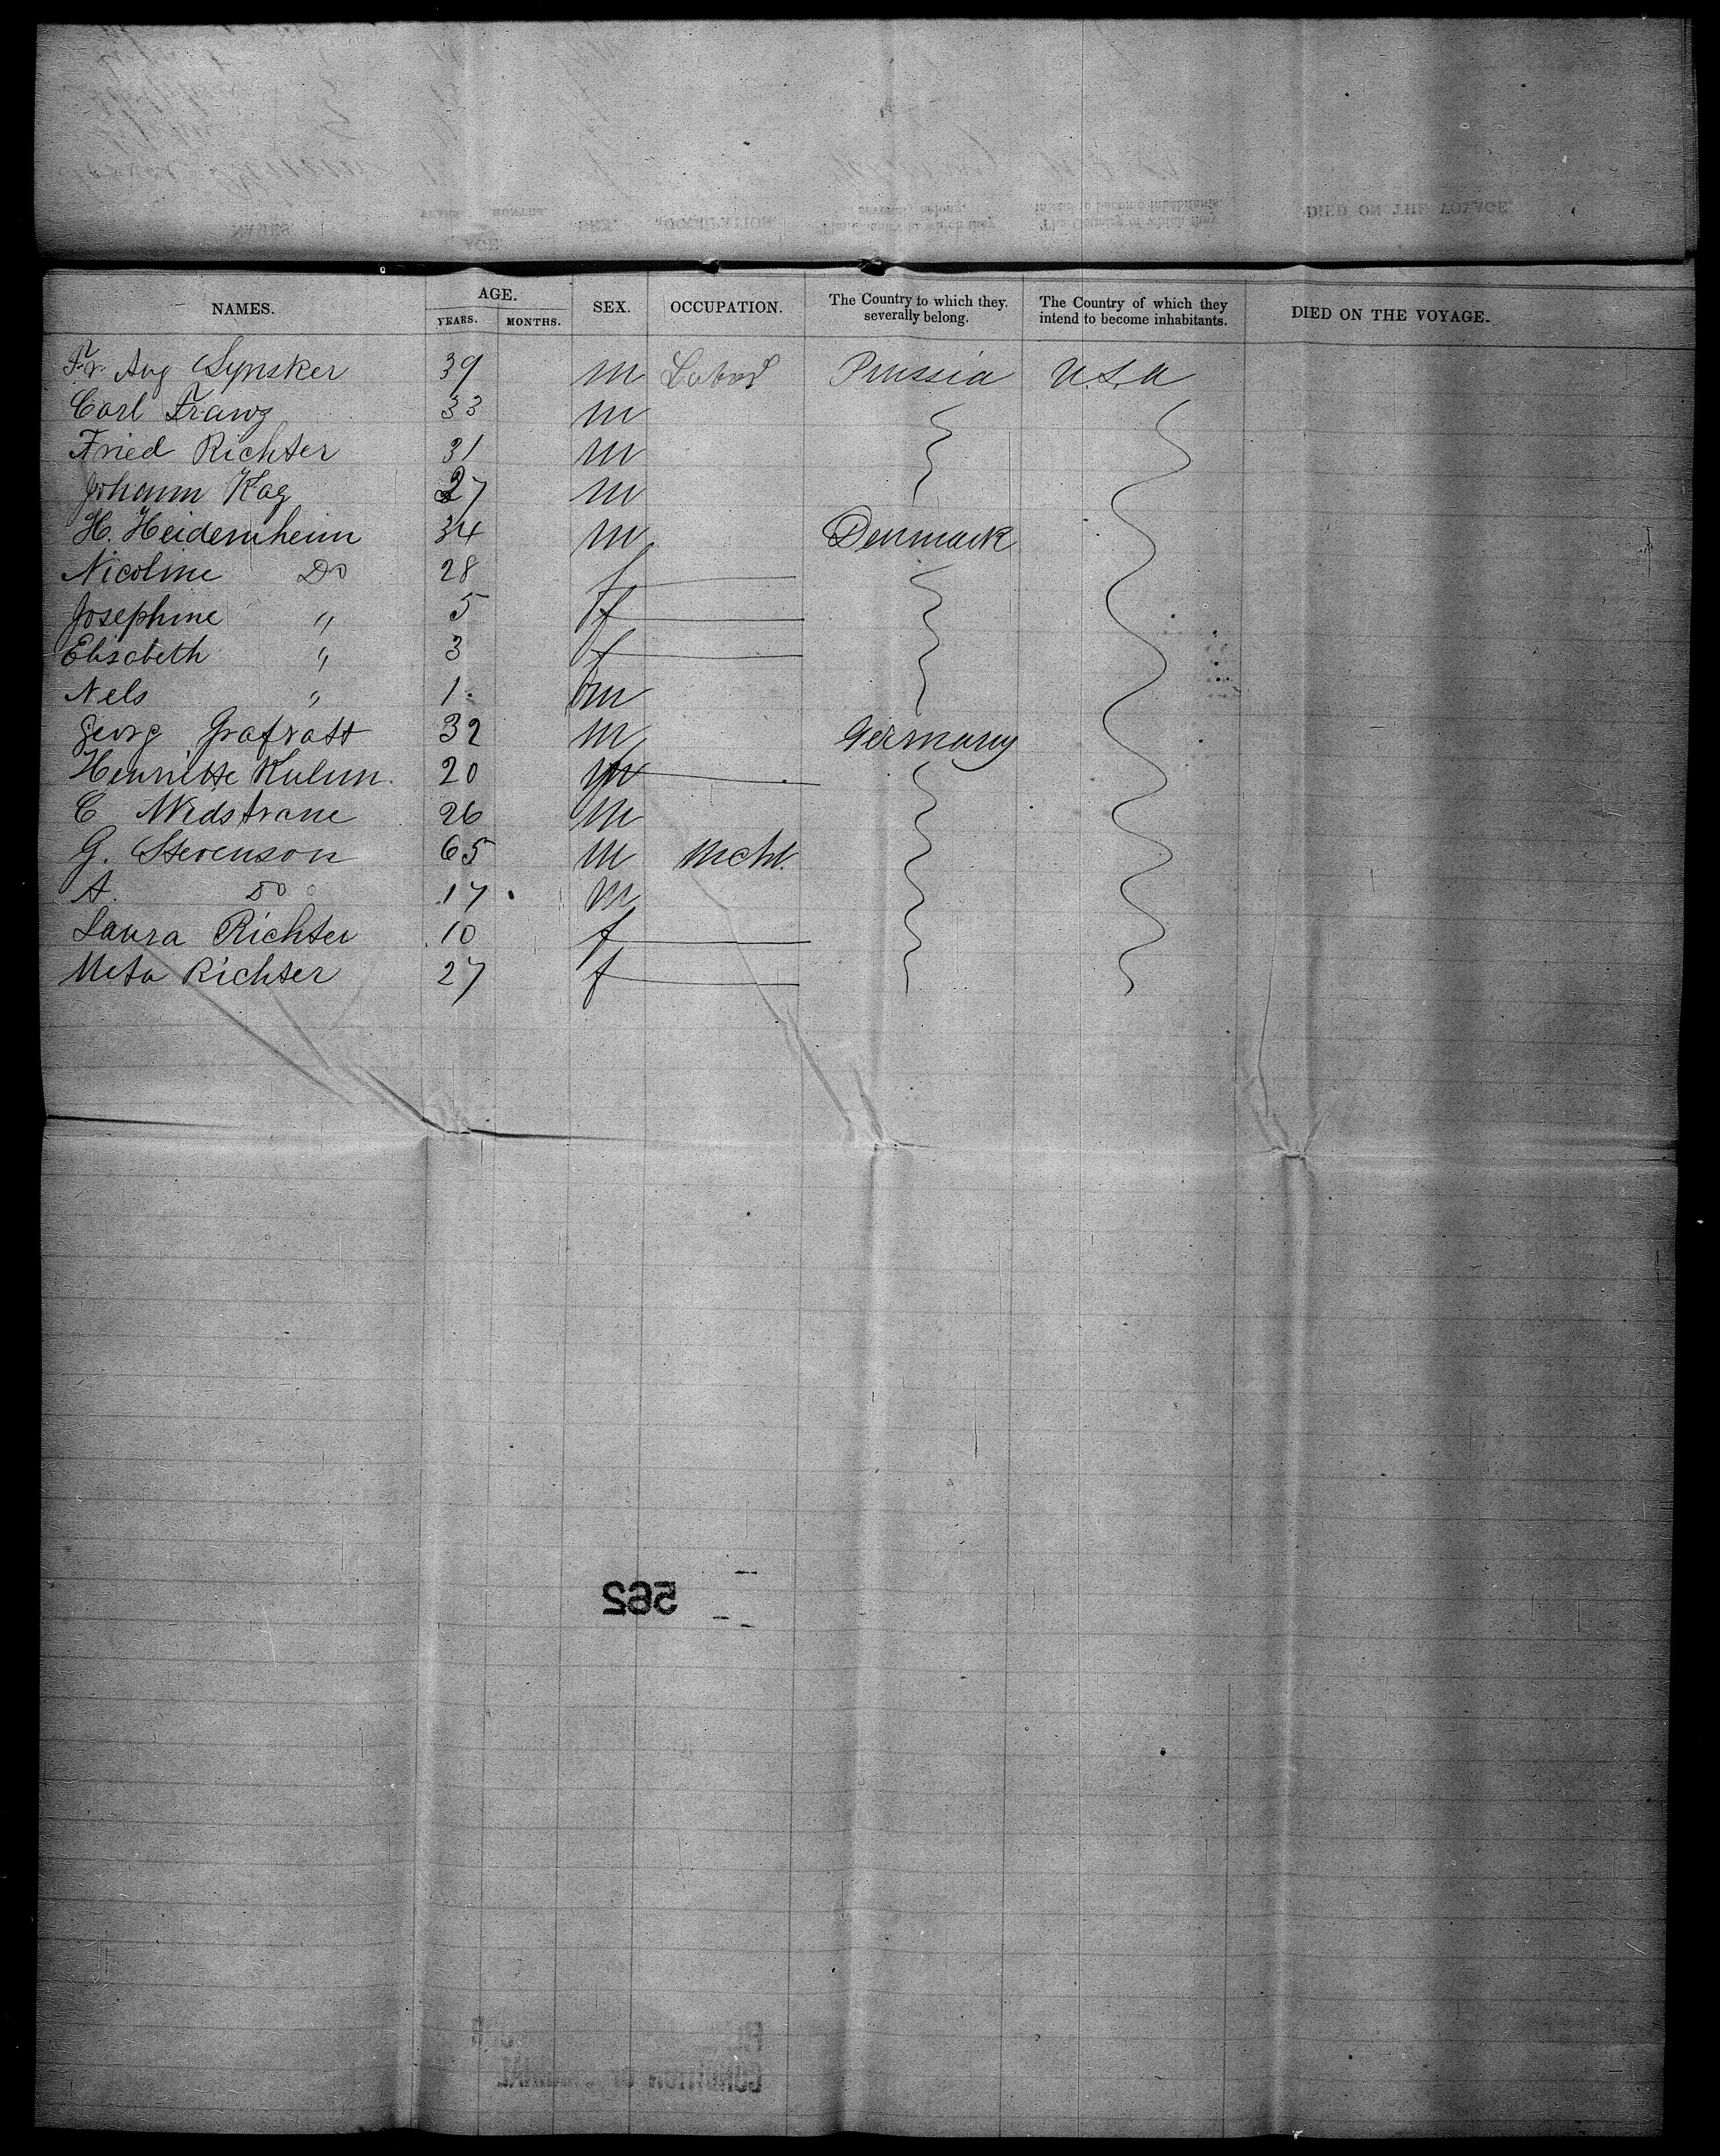 NAMES. AGE. YEARS. MONTHS. SEX. OCCUPATION. The Country to which they severally belong. The Country of which they intend to become inhabitants. DIED ON THE VOYAGE.
Fr. Aug Synsker 39 m Labor Prussia U.S.A
Carl Franz 33 m
Fried Richter 31 m
Johann Kag 27 m
H. Heidernheim 34 m Denmark
Nicoline Do 28 f
Josephine " 5 f
Elisabeth " 3 f
Nels " 1 m
Georg Grafratt 32 m Germany
Henriette Kulun 20 f
C Widstrane 26 m
G. Stevenson 65 m Mcht.
A. Do 17 m
Laura Richter 10 f
Meta Richter 27 f
562